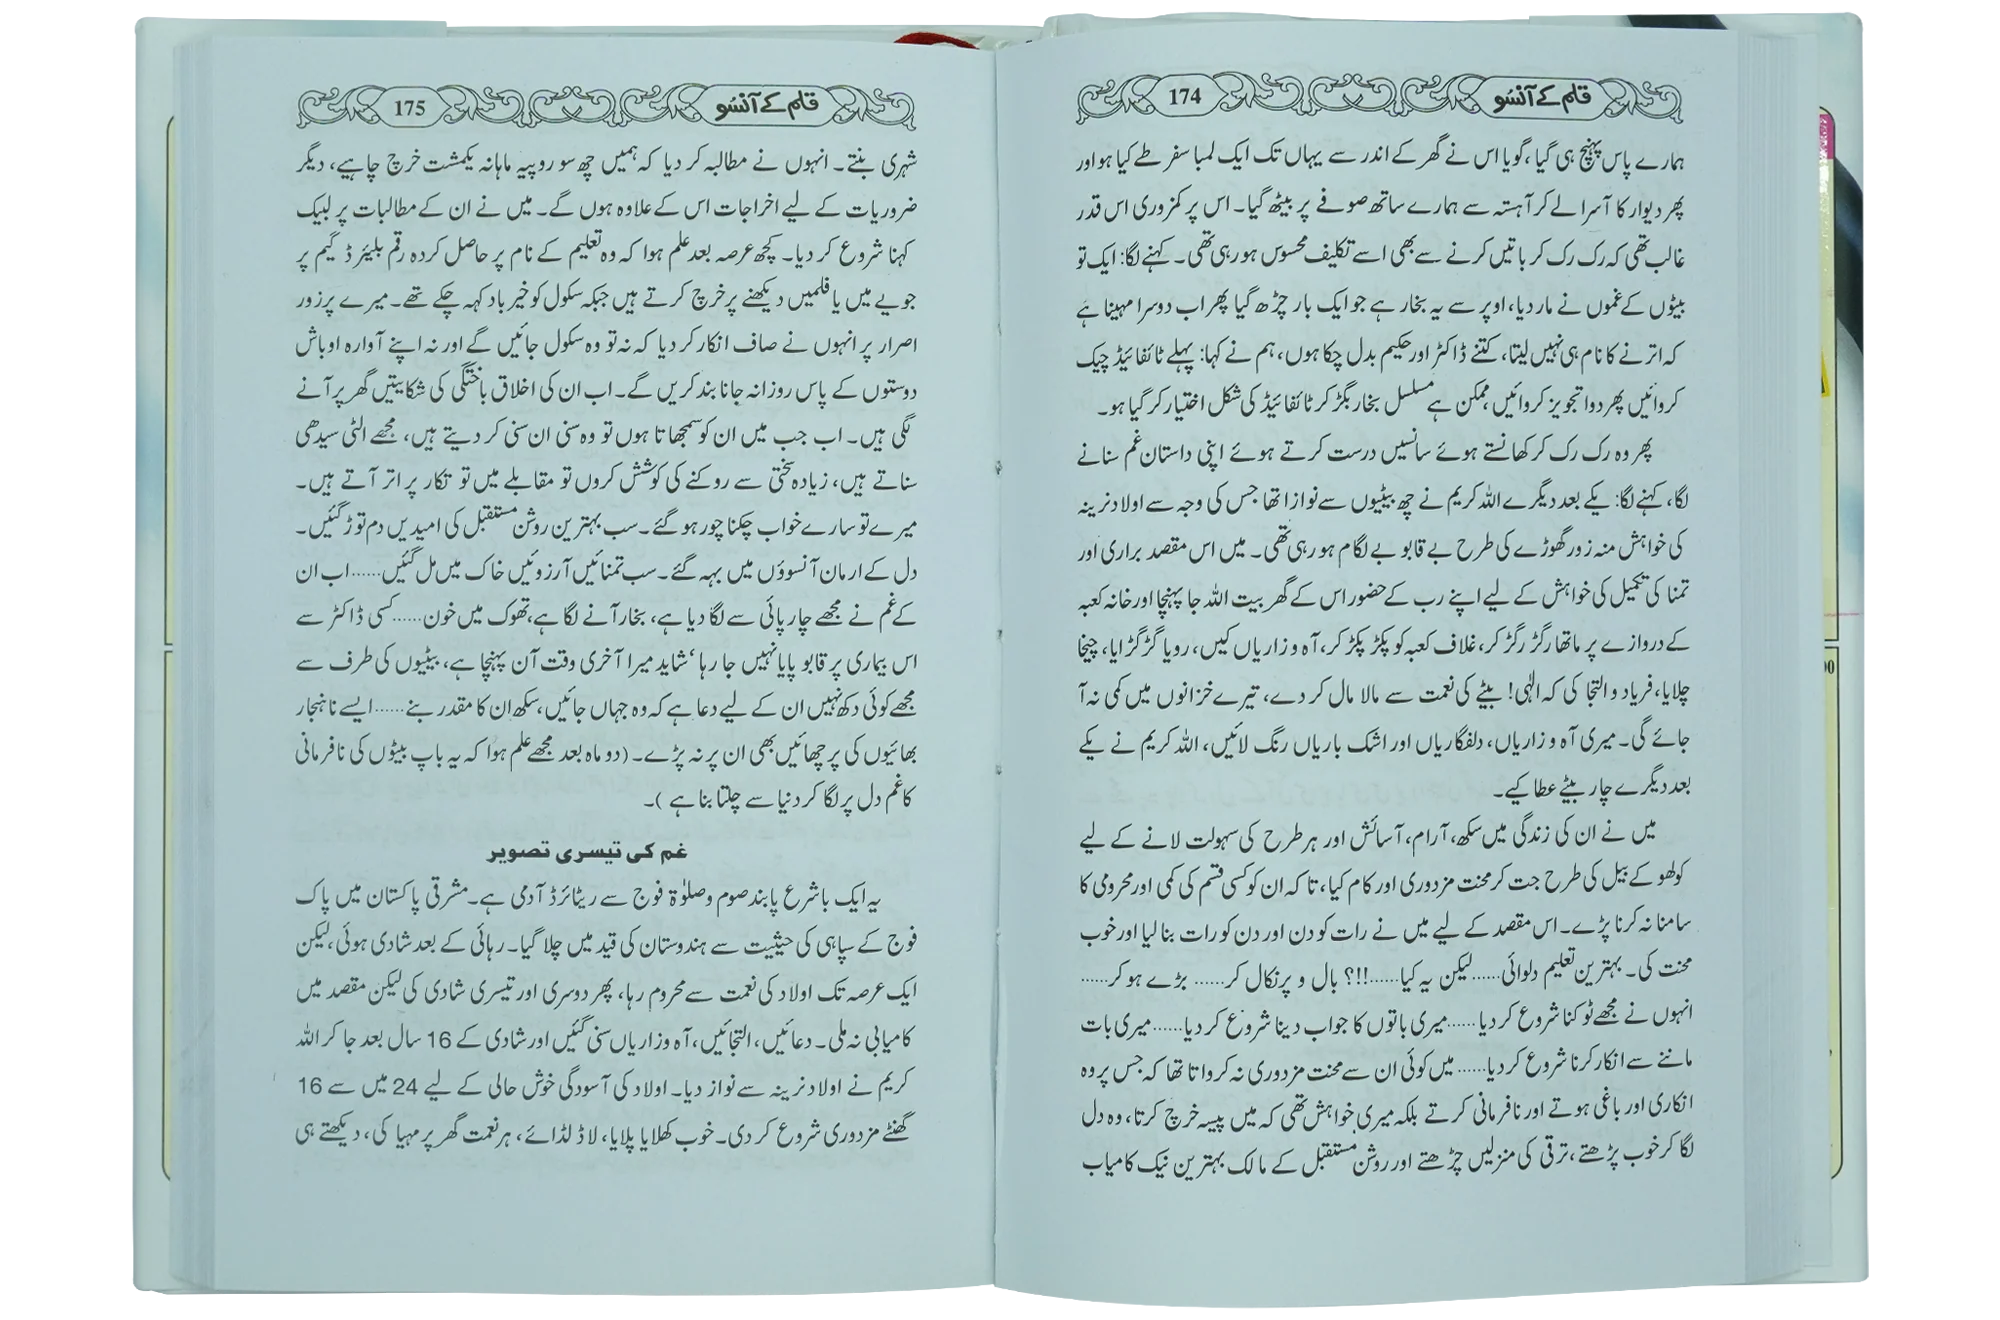 قلم کے آنسو
174
ہمارے پاس پہنچ ہی گیا، گویا اس نے گھر کے اندر سے یہاں تک ایک لمبا سفر طے کیا ہو اور
پھر دیوار کا آسرا لے کر آہستہ سے ہمارے ساتھ صوفے پر بیٹھ گیا۔ اس پر کمزوری اس قدر
غالب تھی کہ رک رک کر باتیں کرنے سے بھی اسے تکلیف محسوس ہو رہی تھی۔ کہنے لگا: ایک تو
بیٹوں کے غموں نے مار دیا، اوپر سے یہ بخار ہے جو ایک بار چڑھ گیا پھر اب دوسرا مہینا ہے
کہ اترنے کا نام ہی نہیں لیتا، کتنے ڈاکٹر اور حکیم بدل چکا ہوں، ہم نے کہا: پہلے ٹائفائیڈ چیک
کروائیں پھر دوا تجویز کروائیں، ممکن ہے مسلسل بخار بگڑ کر ٹائفائیڈ کی شکل اختیار کر گیا ہو۔
پھر وہ رک رک کر کھانستے ہوئے سانسیں درست کرتے ہوئے اپنی داستان غم سنانے
لگا، کہنے لگا: یکے بعد دیگرے اللہ کریم نے چھ بیٹیوں سے نوازا تھا جس کی وجہ سے اولاد نرینہ
کی خواہش منہ زور گھوڑے کی طرح بے قابو بے لگام ہو رہی تھی۔ میں اس مقصد براری اور
تمنا کی تکمیل کی خواہش کے لیے اپنے رب کے حضور اس کے گھر بیت اللہ جا پہنچا اور خانہ کعبہ
کے دروازے پر ماتھا رگڑ رگڑ کر، غلاف کعبہ کو پکڑ پکڑ کر، آہ و زاریاں کیں، رویا گڑگڑایا، چیخا
چلایا، فریاد و التجا کی کہ الٰہی! بیٹے کی نعمت سے مالا مال کر دے، تیرے خزانوں میں کمی نہ آ
جائے گی۔ میری آہ و زاریاں، دلفگاریاں اور اشک باریاں رنگ لائیں، اللہ کریم نے یکے
بعد دیگرے چار بیٹے عطا کیے۔
میں نے ان کی زندگی میں سکھ، آرام، آسائش اور ہر طرح کی سہولت لانے کے لیے
کولہو کے بیل کی طرح جت کر محنت مزدوری اور کام کیا، تا کہ ان کو کسی قسم کی کمی اور محرومی کا
سامنا نہ کرنا پڑے۔ اس مقصد کے لیے میں نے رات کو دن اور دن کو رات بنا لیا اور خوب
محنت کی۔ بہترین تعلیم دلوائی......لیکن یہ کیا......!!؟ بال و پر نکال کر...... بڑے ہو کر......
انہوں نے مجھے ٹوکنا شروع کر دیا......میری باتوں کا جواب دینا شروع کر دیا......میری بات
ماننے سے انکار کرنا شروع کر دیا......میں کوئی ان سے محنت مزدوری نہ کرواتا تھا کہ جس پر وہ
انکاری اور باغی ہوتے اور نافرمانی کرتے بلکہ میری خواہش تھی کہ میں پیسہ خرچ کرتا، وہ دل
لگا کر خوب پڑھتے، ترقی کی منزلیں چڑھتے اور روشن مستقبل کے مالک بہترین نیک کامیاب
قلم کے آنسو
175
شہری بنتے۔ انہوں نے مطالبہ کر دیا کہ ہمیں چھ سو روپیہ ماہانہ یکمشت خرچ چاہیے، دیگر
ضروریات کے لیے اخراجات اس کے علاوہ ہوں گے۔ میں نے ان کے مطالبات پر لبیک
کہنا شروع کر دیا۔ کچھ عرصہ بعد علم ہوا کہ وہ تعلیم کے نام پر حاصل کردہ رقم بلیئرڈ گیم پر
جوئے میں یا فلمیں دیکھنے پر خرچ کرتے ہیں جبکہ سکول کو خیر باد کہہ چکے تھے۔ میرے پرزور
اصرار پر انہوں نے صاف انکار کر دیا کہ نہ تو وہ سکول جائیں گے اور نہ اپنے آوارہ اوباش
دوستوں کے پاس روزانہ جانا بند کریں گے۔ اب ان کی اخلاق باختگی کی شکایتیں گھر پر آنے
لگی ہیں۔ اب جب میں ان کو سمجھاتا ہوں تو وہ سنی ان سنی کر دیتے ہیں، مجھے الٹی سیدھی
سناتے ہیں، زیادہ سختی سے روکنے کی کوشش کروں تو مقابلے میں تو تکار پر اتر آتے ہیں۔
میرے تو سارے خواب چکنا چور ہو گئے۔ سب بہترین روشن مستقبل کی امیدیں دم توڑ گئیں۔
دل کے ارمان آنسوؤں میں بہہ گئے۔ سب تمنائیں آرزوئیں خاک میں مل گئیں......اب ان
کے غم نے مجھے چارپائی سے لگا دیا ہے، بخار آنے لگا ہے، تھوک میں خون......کسی ڈاکٹر سے
اس بیماری پر قابو پایا نہیں جا رہا، شاید میرا آخری وقت آن پہنچا ہے، بیٹیوں کی طرف سے
مجھے کوئی دکھ نہیں ان کے لیے دعا ہے کہ وہ جہاں جائیں، سکھ ان کا مقدر بنے......ایسے ناہنجار
بھائیوں کی پرچھائیں بھی ان پر نہ پڑے۔ (دو ماہ بعد مجھے علم ہوا کہ یہ باپ بیٹوں کی نافرمانی
کا غم دل پر لگا کر دنیا سے چلتا بنا ہے)۔
غم کی تیسری تصویر
یہ ایک باشرع پابند صوم و صلوٰۃ فوج سے ریٹائرڈ آدمی ہے۔ مشرقی پاکستان میں پاک
فوج کے سپاہی کی حیثیت سے ہندوستان کی قید میں چلا گیا۔ رہائی کے بعد شادی ہوئی، لیکن
ایک عرصہ تک اولاد کی نعمت سے محروم رہا، پھر دوسری اور تیسری شادی کی لیکن مقصد میں
کامیابی نہ ملی۔ دعائیں، التجائیں، آہ و زاریاں سنی گئیں اور شادی کے 16 سال بعد جا کر اللہ
کریم نے اولاد نرینہ سے نواز دیا۔ اولاد کی آسودگی خوش حالی کے لیے 24 میں سے 16
گھنٹے مزدوری شروع کر دی۔ خوب کھلایا پلایا، لاڈ لڈائے، ہر نعمت گھر پر مہیا کی، دیکھتے ہی